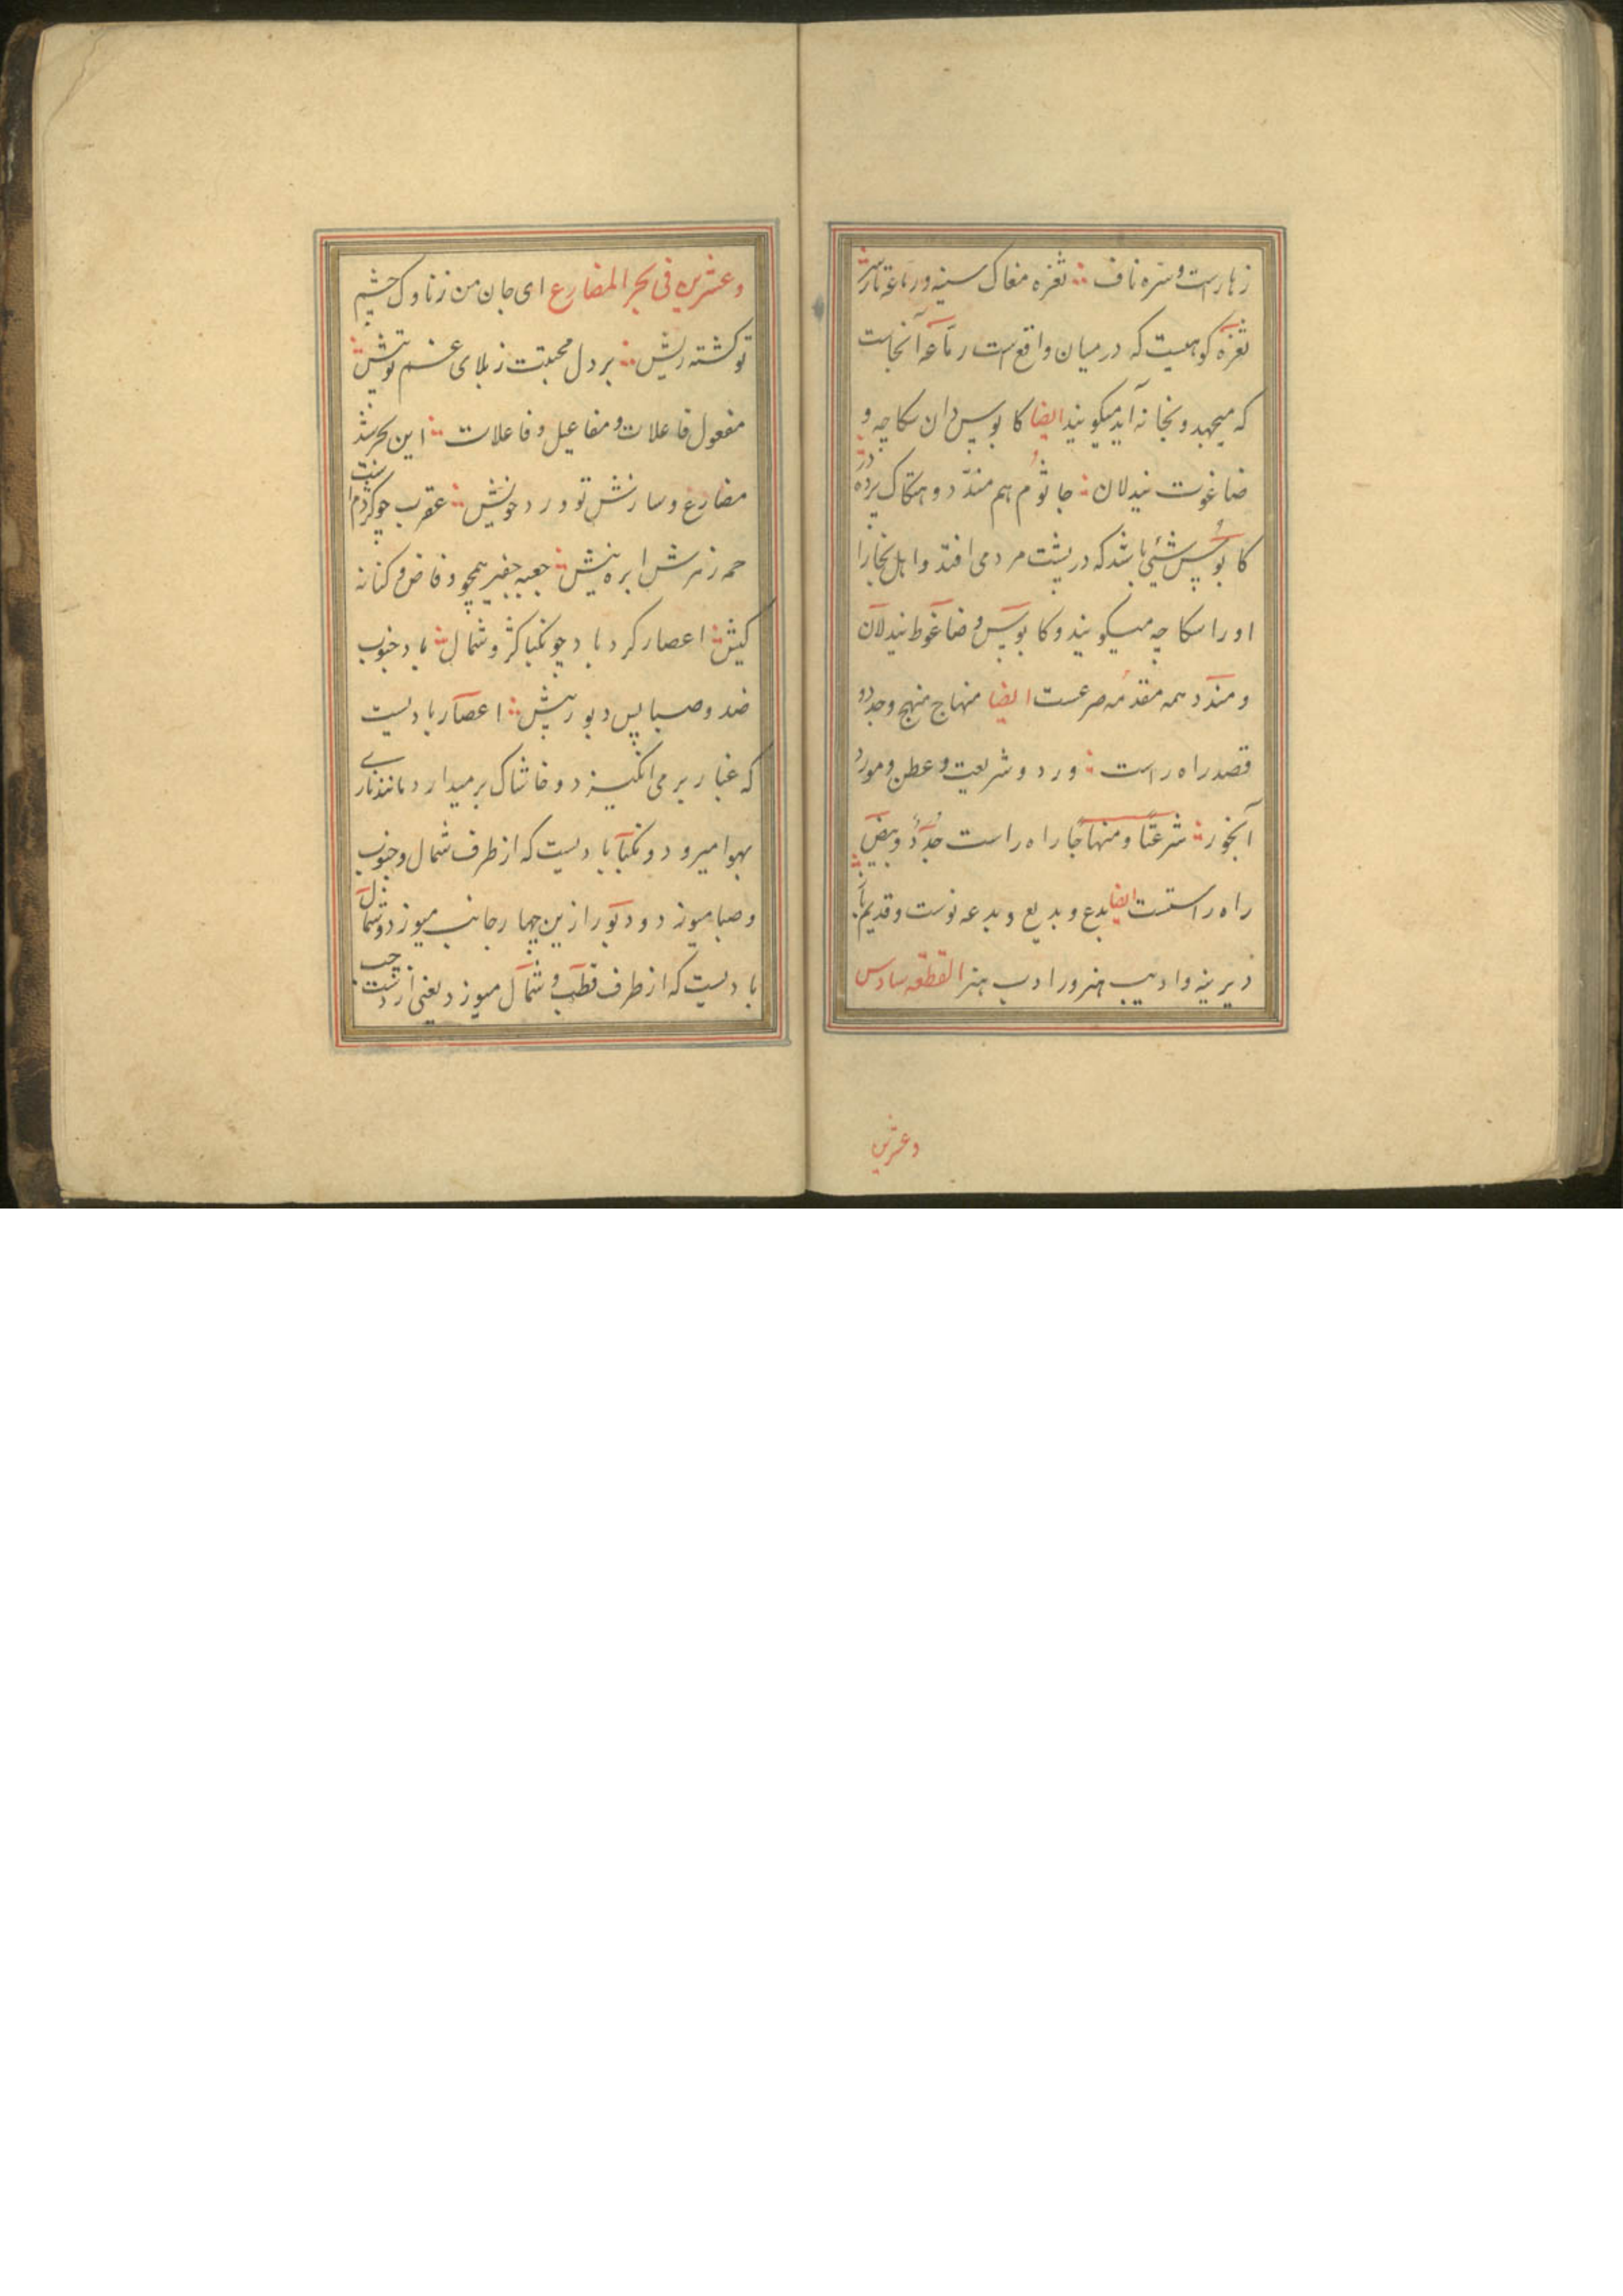 زهارست و سره ناف ؞ ثغره مغاک سینه و رماعه تارسر ؞
ثغره کوهیست که در میان واقع است رماعه آنجاست
که میجهد و بخانه آید میکویند ایضا کابوس دان سکاچه و
ضاغوت نیدلان ؞ جاثوم هم مندد و هتاک پرده در
کابوس شیئی باشد که در پشت مردمی افتد و اهل بخارا
اورا سکاچه میکویند و کابوس و ضاغوط نیدلان
و مندد همه مقدمه صرعست ایضا منهاج منهج و جدد و
قصد راه راست ؞ ورد و شریعت و عطن و مورد
آبخور ؞ شرعتا و منهاجا راه راست جدد و بیض
راه راستست ایضا بدع و بدیع و بدعه نوست و قدیم
دیرینه و ادیب هنرور ادب هنر القطعه سادس
وعشرین
وعشرین فی بحر المضارع ای جان من زناوک چشم
تو کشته ریش ؞ بر دل محبتت ز بلای غم تو بیش ؞
مفعول فاعلات و مفاعیل و فاعلات ؞ این بحر شد
مضارع و سازش تو ورد خویش ؞ عقرب چو کژدم است
حمه زهرش ابره نیش ؞ جعبه جفیر همچو وفاض و کنانه
کیش ؞ اعصار کردباد چو نکبا کژ و شمال ؞ باد جنوب
ضد و صبا پس دبور پیش ؞ اعصار بادیست
که غبار بر می انکیزد و خاشاک بر میدارد مانند ناری
بهوا میرود و نکبا بادیست که از طرف شمال و جنوب
و صبا میوزد و دبور ازین چهار جانب میوزد و شمال
بادیست که از طرف قطب و شمال میوزد یعنی از دست چپ